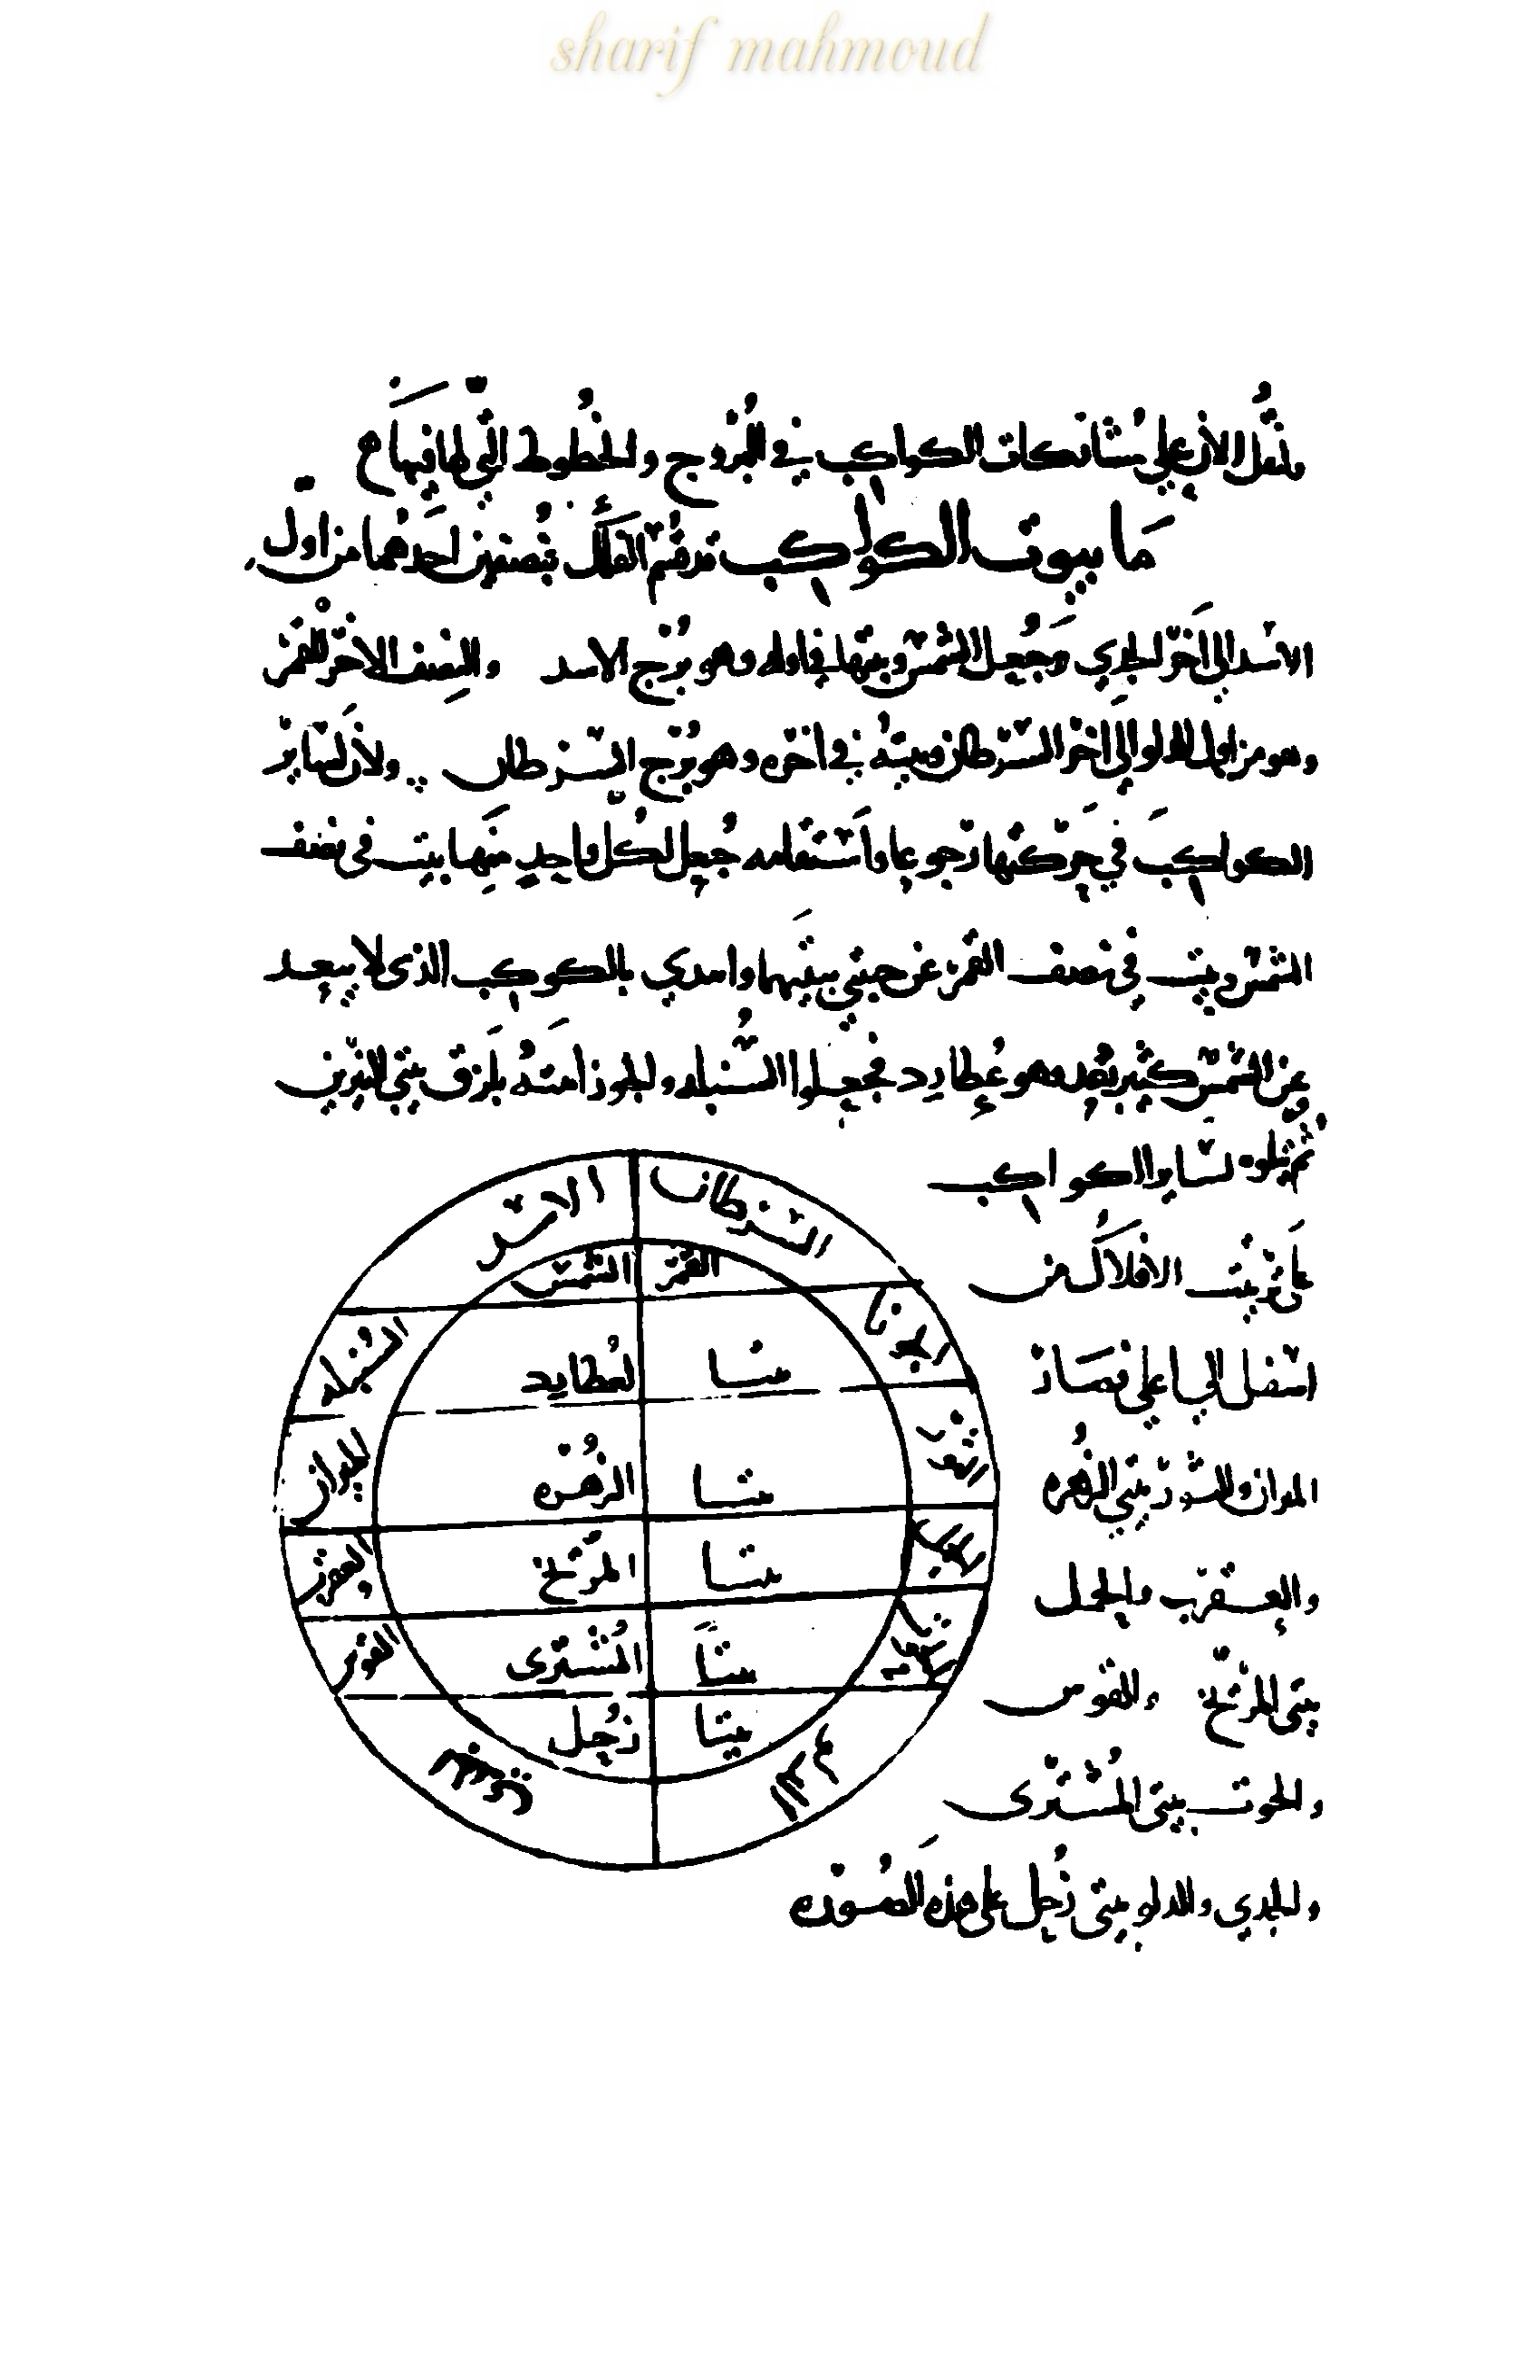 sharif mahmoud
الان على مُشاركات الكواكب في البُروج والخُطوط التّي لها فيهَا ح
مَا بيوت الكواكب قد قُسِّم الفَلَك بنُصفين احَدهُما من اوّل
الاسد الي اَخر الجدي وَجُعِل الشمس وبيتها في اوله وهو بُرج الاسد والنِصف الاخر للقَمر
وهو من اول الدلو الي اَخر السرطان وبيتهُ في اخره وهو بُرج السرطان ولانَ لسَاير
الكواكبَ في حَركتها رجوعا واَستقامه جُعِل لكُل واحدٍ منِهَا بيت في نصف
الشمس وبيت في نصف القمر عن جنبتي بيتَيهما وابتدي بالكوكب الذي لا يبعِد
عن الشمس كثير بُعد وهو عُطارِد فجعِلوا السُنبله والجوزا بيتَهُ بلزق بيتي النيرين
ثم نزلوه لسَاير الكواكب
علَى ترتيُب الافلاَك من
اسفل الي اعلي فصَار
الميزان والثور بيتي الزُهره
والعِقرب والحمل
بيتى المرّيخ والقوس
والحوت بيتى المُشترى
والجدي والدلو بيتى زُحل على هذه الصُوَره
السرطان
الاسد
القمر
الشمس
الجوزا
السُنبله
بيتا
لعُطارد
الثور
الميزان
بيتا
الزُهره
الحمل
العقرب
بيتا
المرّيخ
الحوت
القوس
بيتاَ
المُشترى
بيتا
زُحل
الدلو
الجدي